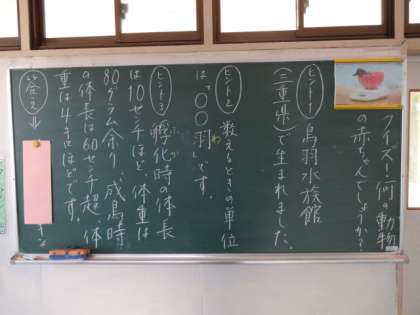 クイズ！何の動物
の赤ちゃんでしょうか？
ヒント1 鳥羽水族館
(三重県)で生まれました。
ヒント2 数えるときの単位
は「〇〇羽」です。
わ
ヒント3 孵化時の体長
ふか
は10センチほど、体重は
80グラム余り、成鳥時
の体長は60センチ超、体
重は4キロほどです。
答え→
ン